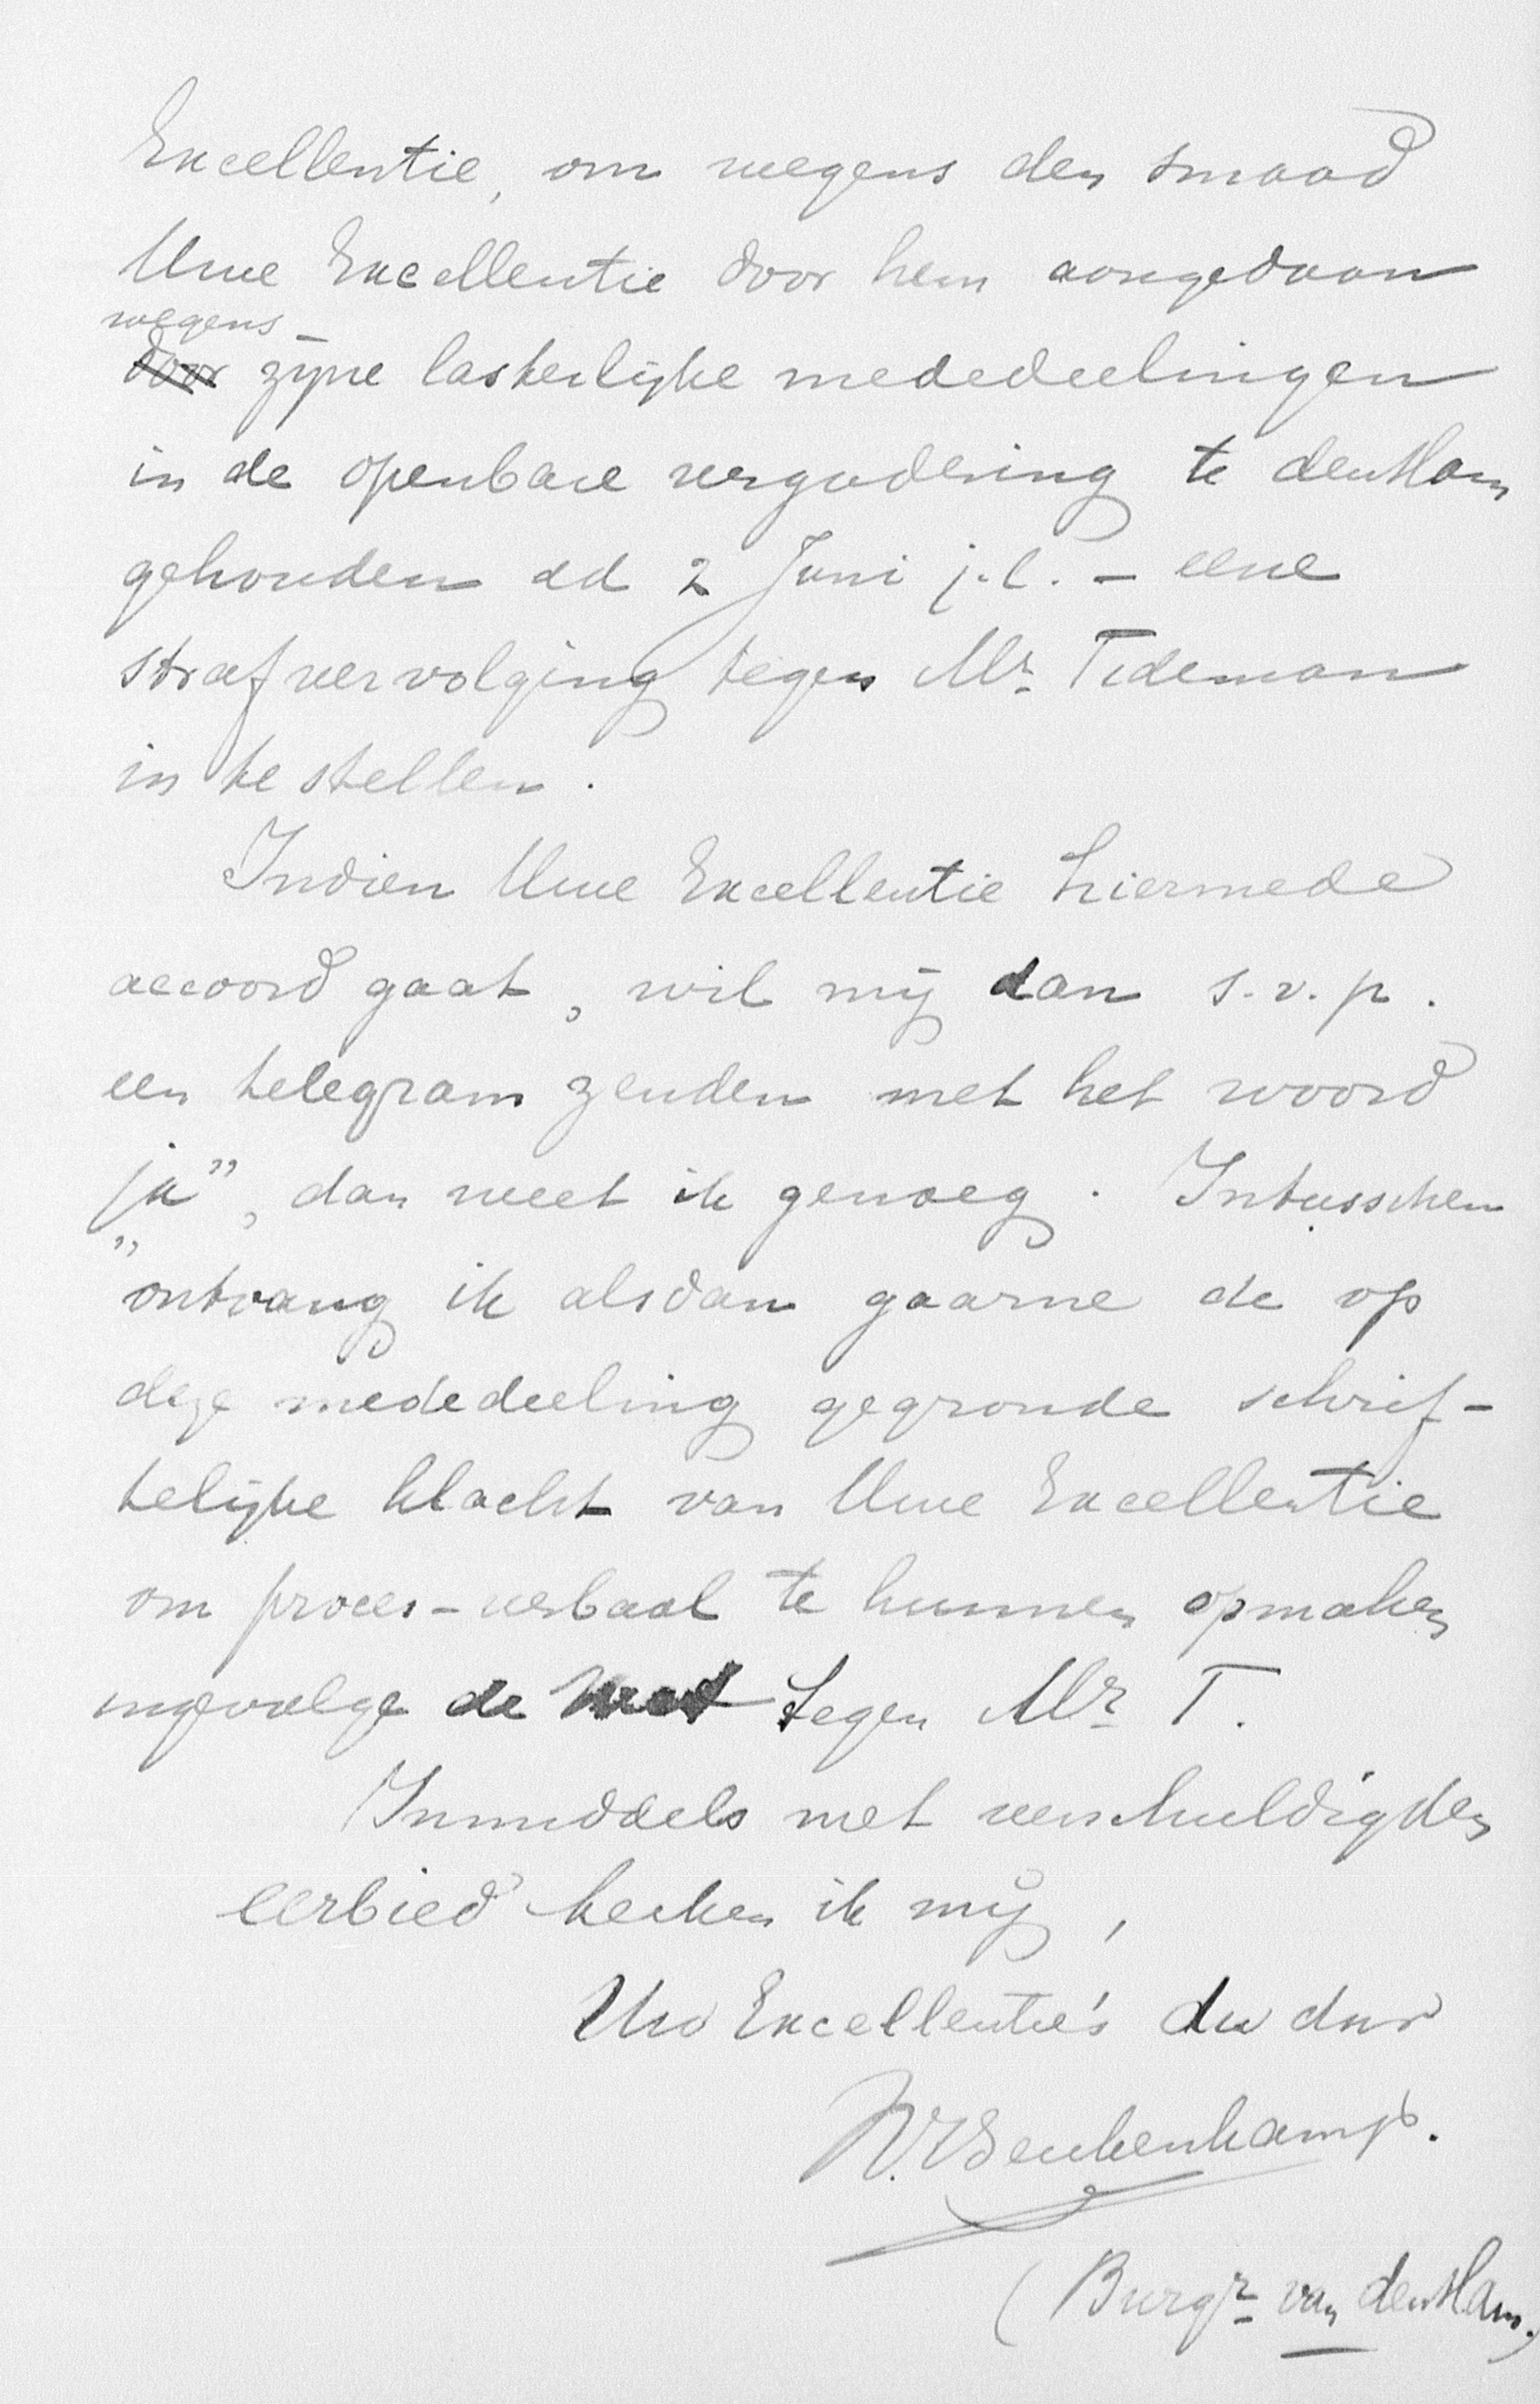 Excellentie, om wegens den smaad
Uwe Excellentie door hem aangedaan
wegens
door zijne lasterlijke mededeelingen
in de openbare vergadering te den Ham
gehouden dd 2 Juni j.l. – eene
strafvervolging tegen Mr. Tideman
in te stellen.
Indien Uwe Excellentie hiermede
accoord gaat, wil mij dan s.v.p.
een telegram zenden met het woord
„ja”, dan weet ik genoeg. Intusschen
ontvang ik alsdan gaarne de op
deze mededeeling gegronde schrif-
telijke klacht van Uwe Excellentie
om proces-verbaal te kunnen opmaken
ingevolge de Wet tegen Mr T.
Inmiddels met verschuldigden
eerbied teeken ik mij,
Uw Excellentie's dw dnr
(Burgr van den Ham.)